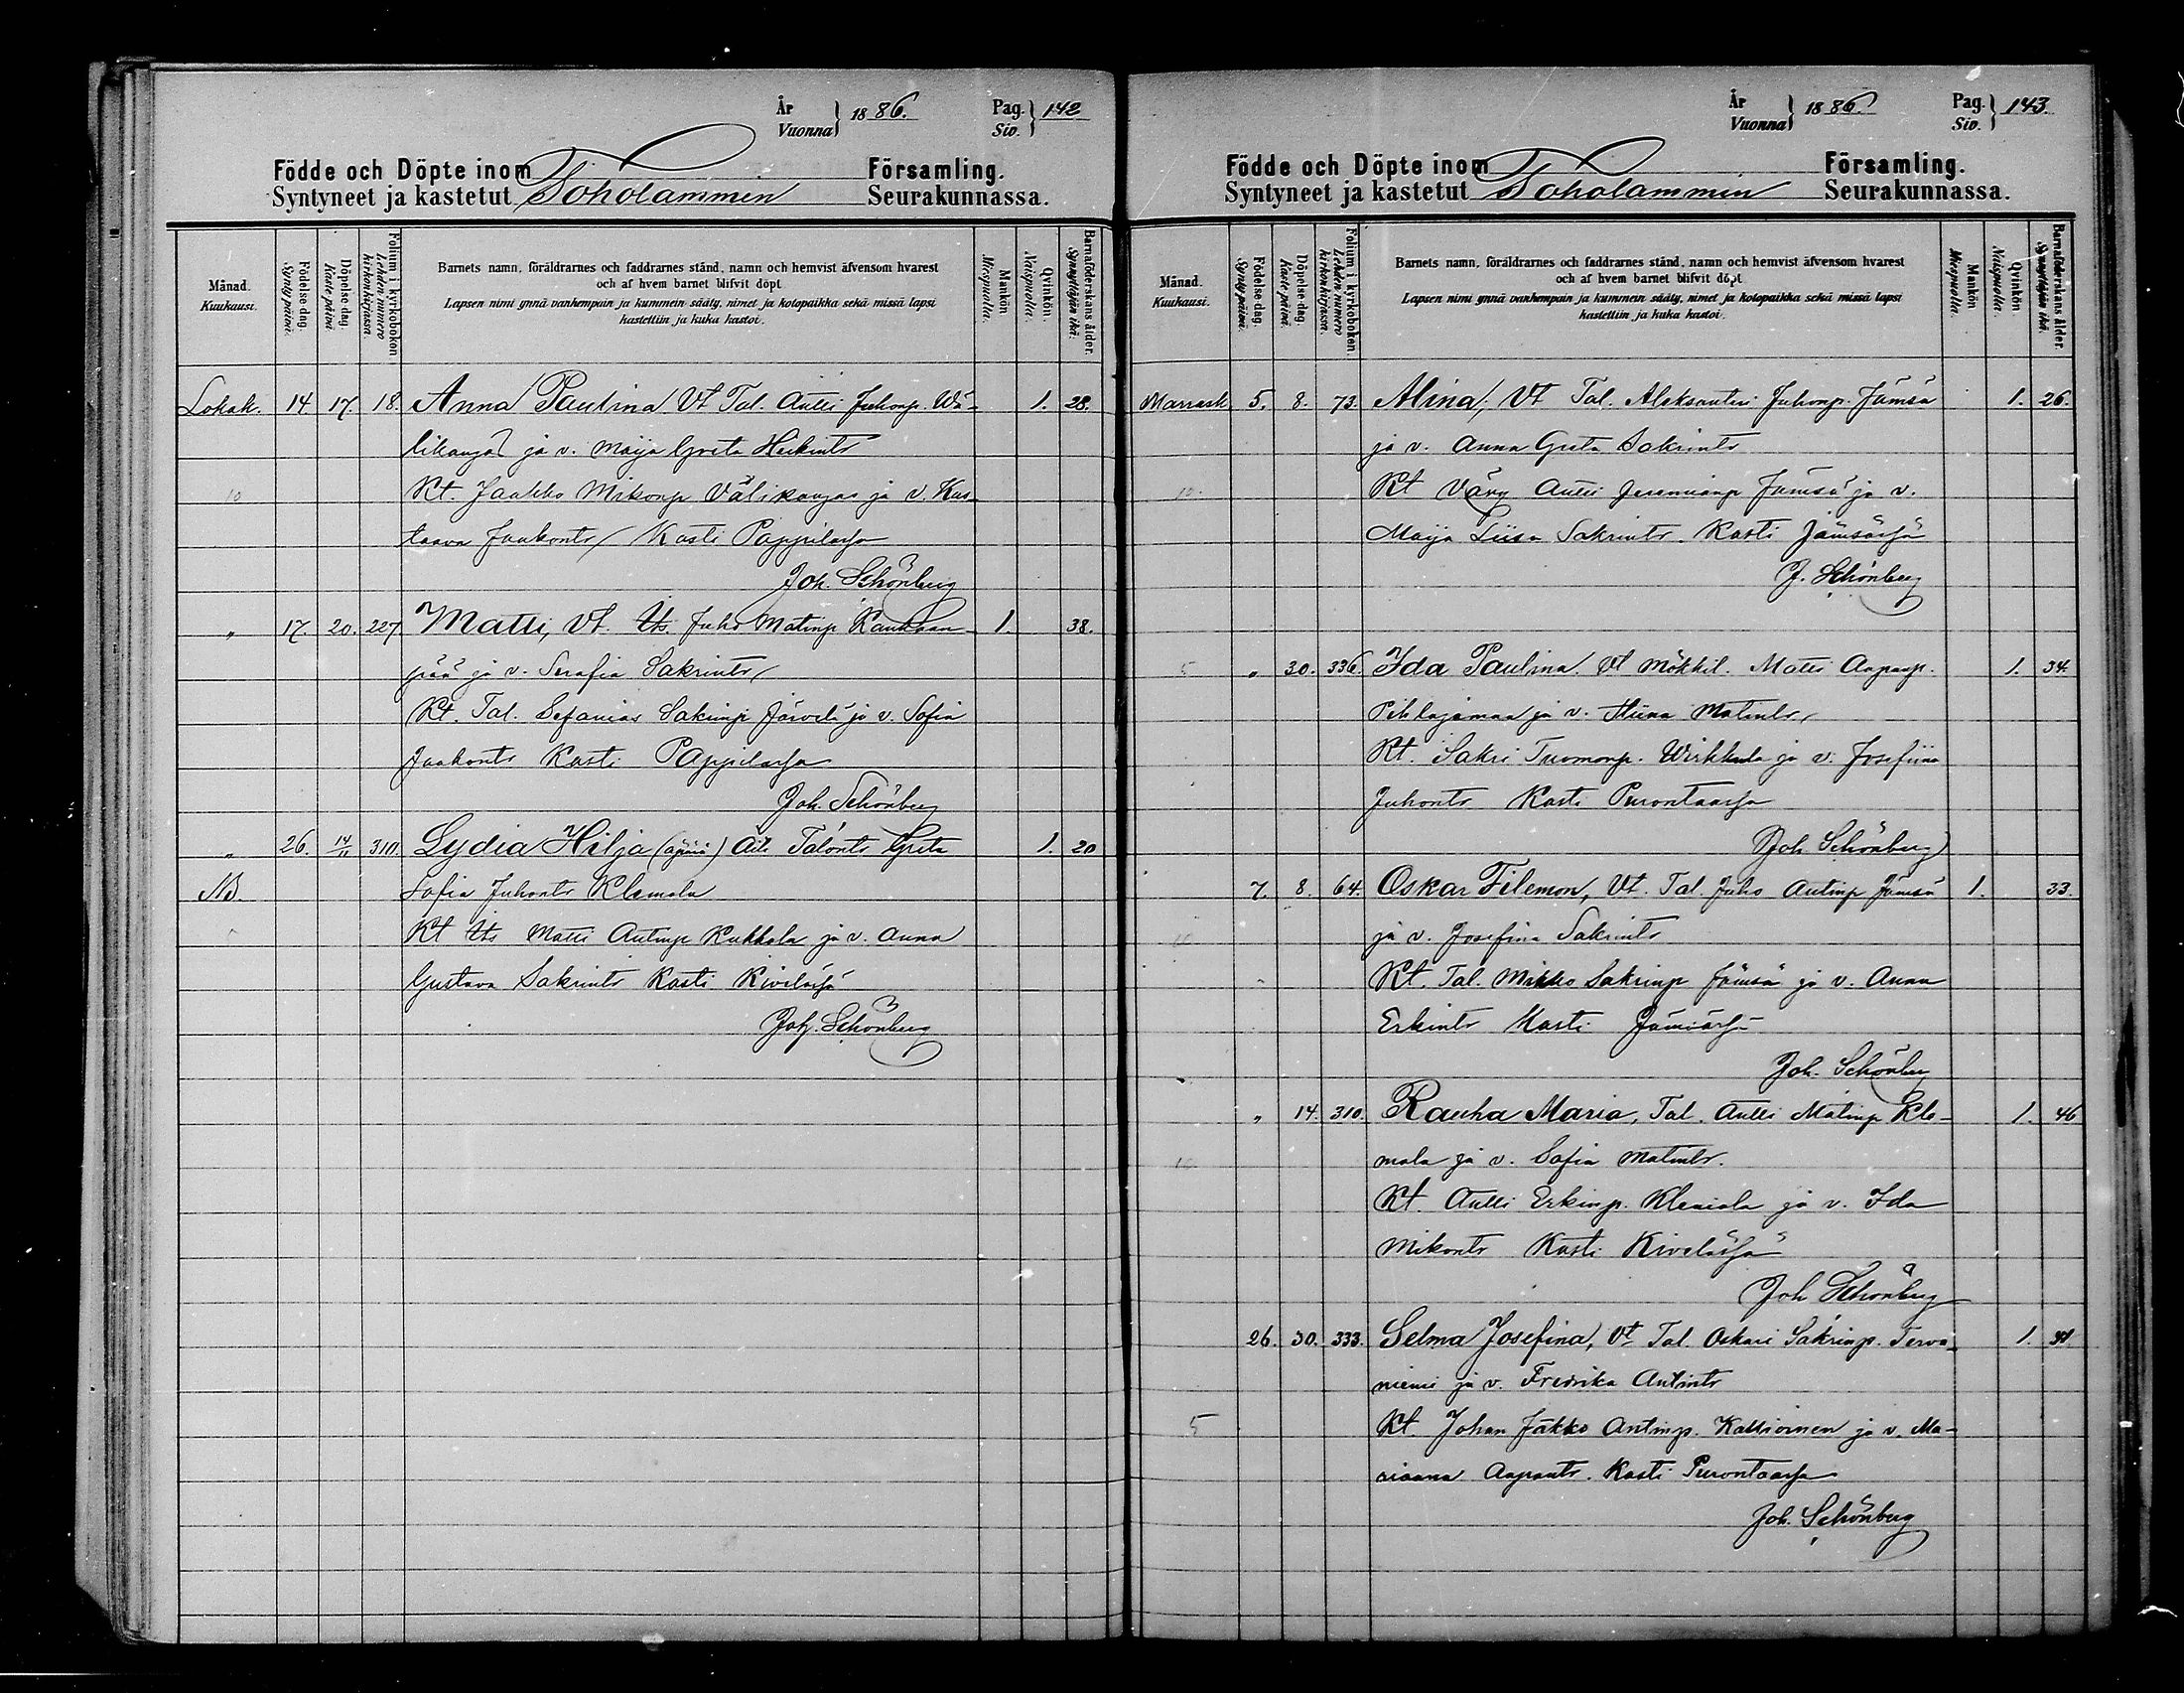 År
Vuonna } 1886.
Pag.
Siv. } 142
Födde och Döpte inom Församling.
Syntyneet ja kastetut Toholammin Seurakunnassa.
Månad. Kuukausi.
Födelse-dag. Synty päivä.
Döpelse-dag. Kaste päivä.
Folium i kyrkoboken Lehden numero kirkonkirjassa.
Barnets namn, föräldrarnes och faddrarnes stånd, namn och hemvist äfvensom hvarest
och af hvem barnet blifvit döpt.
Lapsen nimi ynnä vanhempain ja kummein sääty, nimet ja kotopaikka sekä missä lapsi
kastettiin ja kuka kastoi.
Mankön Miespuolia.
Qvinkön. Naispuolia.
Barnaföderskans ålder. Synnyttäjän ikä.
Lokak. 14 17. 18. Anna Paulina Vt Tal. Antti Juhonp. Wä- 1. 28.
likangas ja v. Maija Greta Heikintr
10 Kt. Jaakko Mikonp Välikangas ja v. Kus-
taava Jaakontr / Kasti Pappilassa
Joh. Schönberg
" 17. 20. 227 Matti, Vt. Its. Juho Matinp Kauhan- 1. 38.
pää ja v. Serafia Sakrintr
Kt. Tal. Sefanias Sakrinp Järvelä ja v. Sofia
Jaakontr Kasti Pappilassa
Joh. Schönberg
" 26. 14/11 310. Lydia Hilja (äpärä) Äiti Talontr Greta 1. 20
NB. Sofia Juhontr Klemola
Kt Its Matti Antinp Kukkola ja v. Anna
Gustava Sakrintr Kasti Kivelässä
Joh. Schönberg
År
Vuonna } 1886.
Pag.
Siv. } 143.
Födde och Döpte inom Församling.
Syntyneet ja kastetut Toholammin Seurakunnassa.
Månad. Kuukausi.
Födelse-dag. Synty päivä.
Döpelse-dag. Kaste päivä.
Folium i kyrkoboken. Lehden numero kirkonkirjassa.
Barnets namn, föräldrarnes och faddrarnes stånd, namn och hemvist äfvensom hvarest
och af hvem barnet blifvit döpt.
Lapsen nimi ynnä vanhempain ja kummein sääty, nimet ja kotopaikka sekä missä lapsi
kastettiin ja kuka kastoi.
Mankön Miespuolia.
Qvinkön Naispuolia.
Barnaföderskans ålder. Synnyttäjän ikä.
Marrask 5. 8. 73. Alina, Vt Tal. Aleksanteri Juhonp. Jämsä 1. 26.
ja v. Anna Greta Sakrintr
10. Kt Vävy Antti Jeremianp Jämsä ja v.
Maija Liisa Sakrintr. Kasti Jämsässä
J. Schönberg
5 " 30. 336. Ida Paulina. Vt Mökkil. Matti Aapanp. 1. 34.
Pihlajamaa ja v. Stiina Matintr,
Kt. Sakri Tuomonp. Wirkkala ja v. Josefiina
Juhontr Kasti Purontaassa
Joh. Schönberg
7. 8. 64. Oskar Filemon, Vt. Tal. Juho Antinp Jämsä 1. 33.
10 ja v. Josefina Sakrintr
Kt. Tal. Mikko Sakrinp Jämsä ja v. Anna
Erkintr Kasti Jämsässä
Joh. Schönberg
" 14. 310. Rauha Maria, Tal. Antti Matinp Kle- 1. 46
10 mola ja v. Sofia Matintr.
Kt. Antti Erkinp. Klemola ja v. Ida
Mikontr Kasti Kivelässä
Joh Schönberg
26. 30. 333. Selma Josefina, Vt Tal. Oskari Sakrinp. Terva- 1.
niemi ja v. Fredrika Antintr
5 Kt. Johan Jakko Antinp. Kattioinen ja v. Ma-
riaana Aapantr. Kasti Purontaassa
Joh. Schönberg